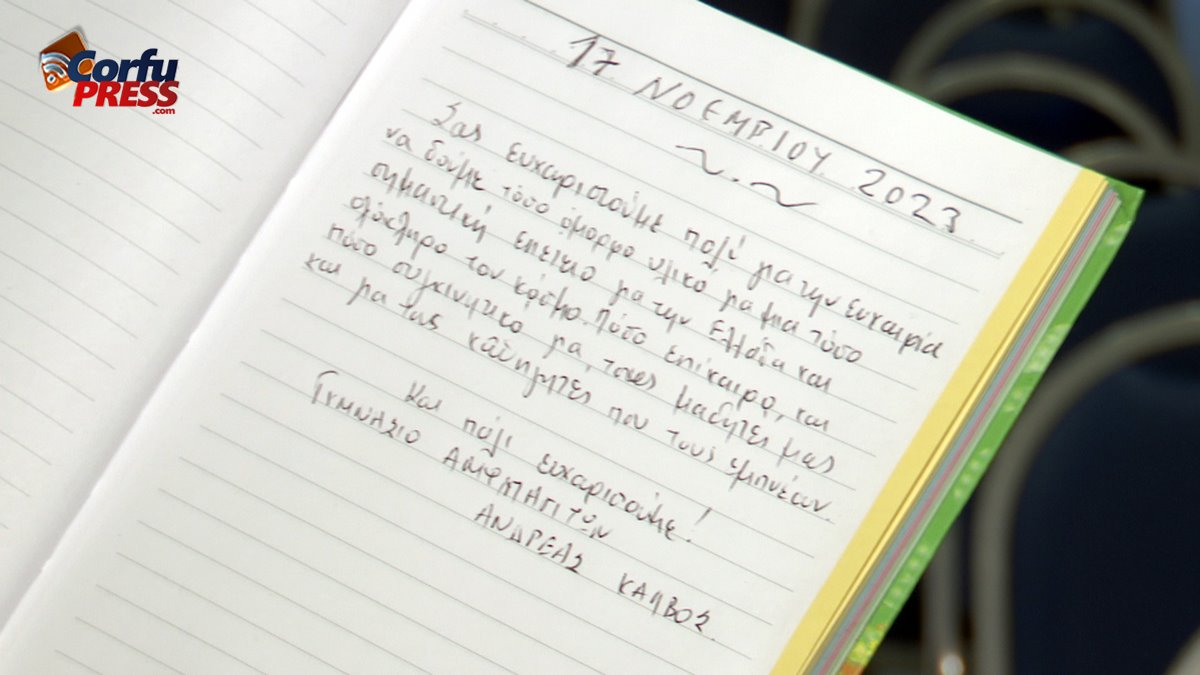 Corfu
PRESS
.com
17 ΝΟΕΜΒΡΙΟΥ 2023
Σας ευχαριστούμε πολύ για την ευκαιρία
να δούμε τόσο όμορφο υλικό για μια τόσο
σημαντική επέτειο για την Ελλάδα και
ολόκληρο τον κόσμο. Πόσο επίκαιρο, και
πόσο συγκινητικό για τους μαθητές μας
και για τους καθηγητές που τους εμπνέουν.
Και πάλι ευχαριστούμε!
ΓΥΜΝΑΣΙΟ ΑΜΦΙΠΑΓΙΤΩΝ
ΑΝΔΡΕΑΣ ΚΑΛΒΟΣ.